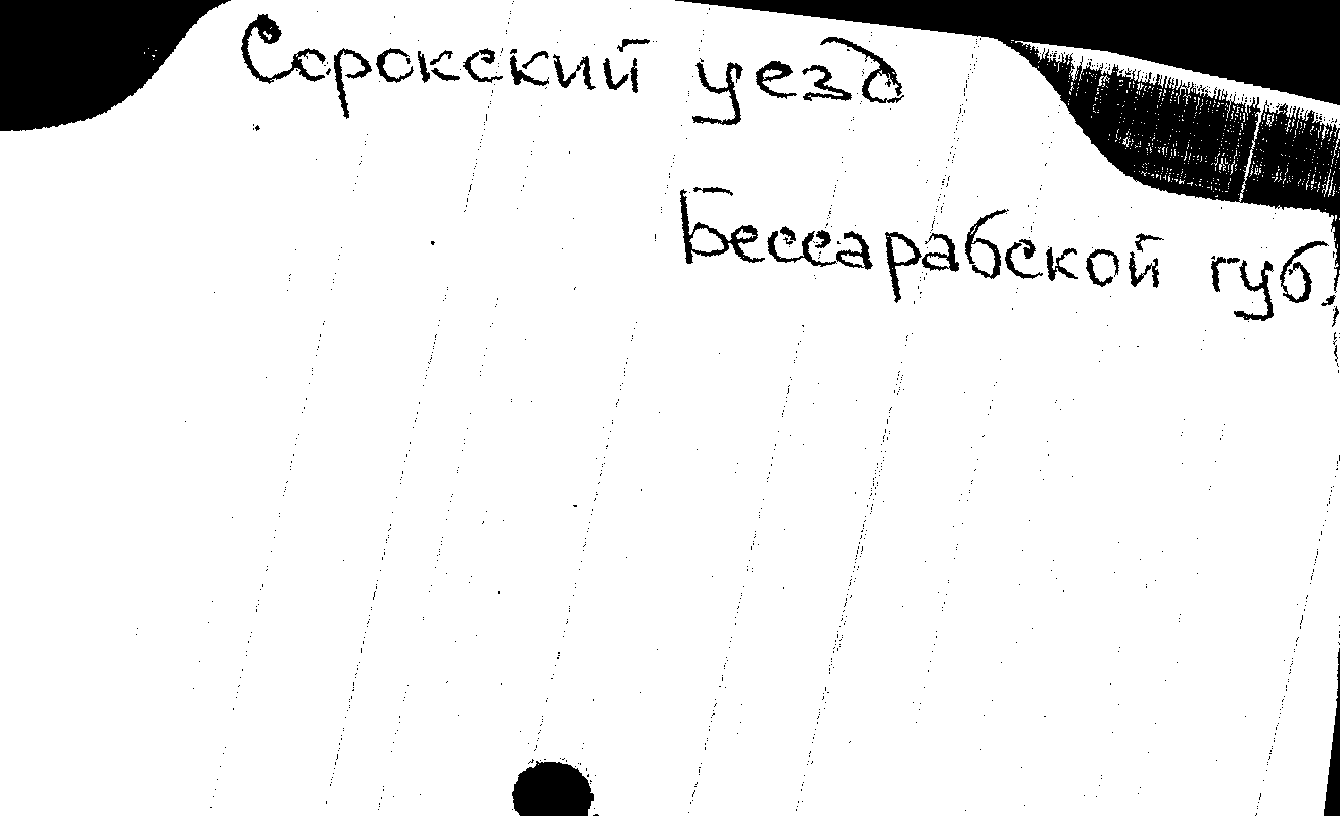 Сорокский уезд
Бессарабской губ.